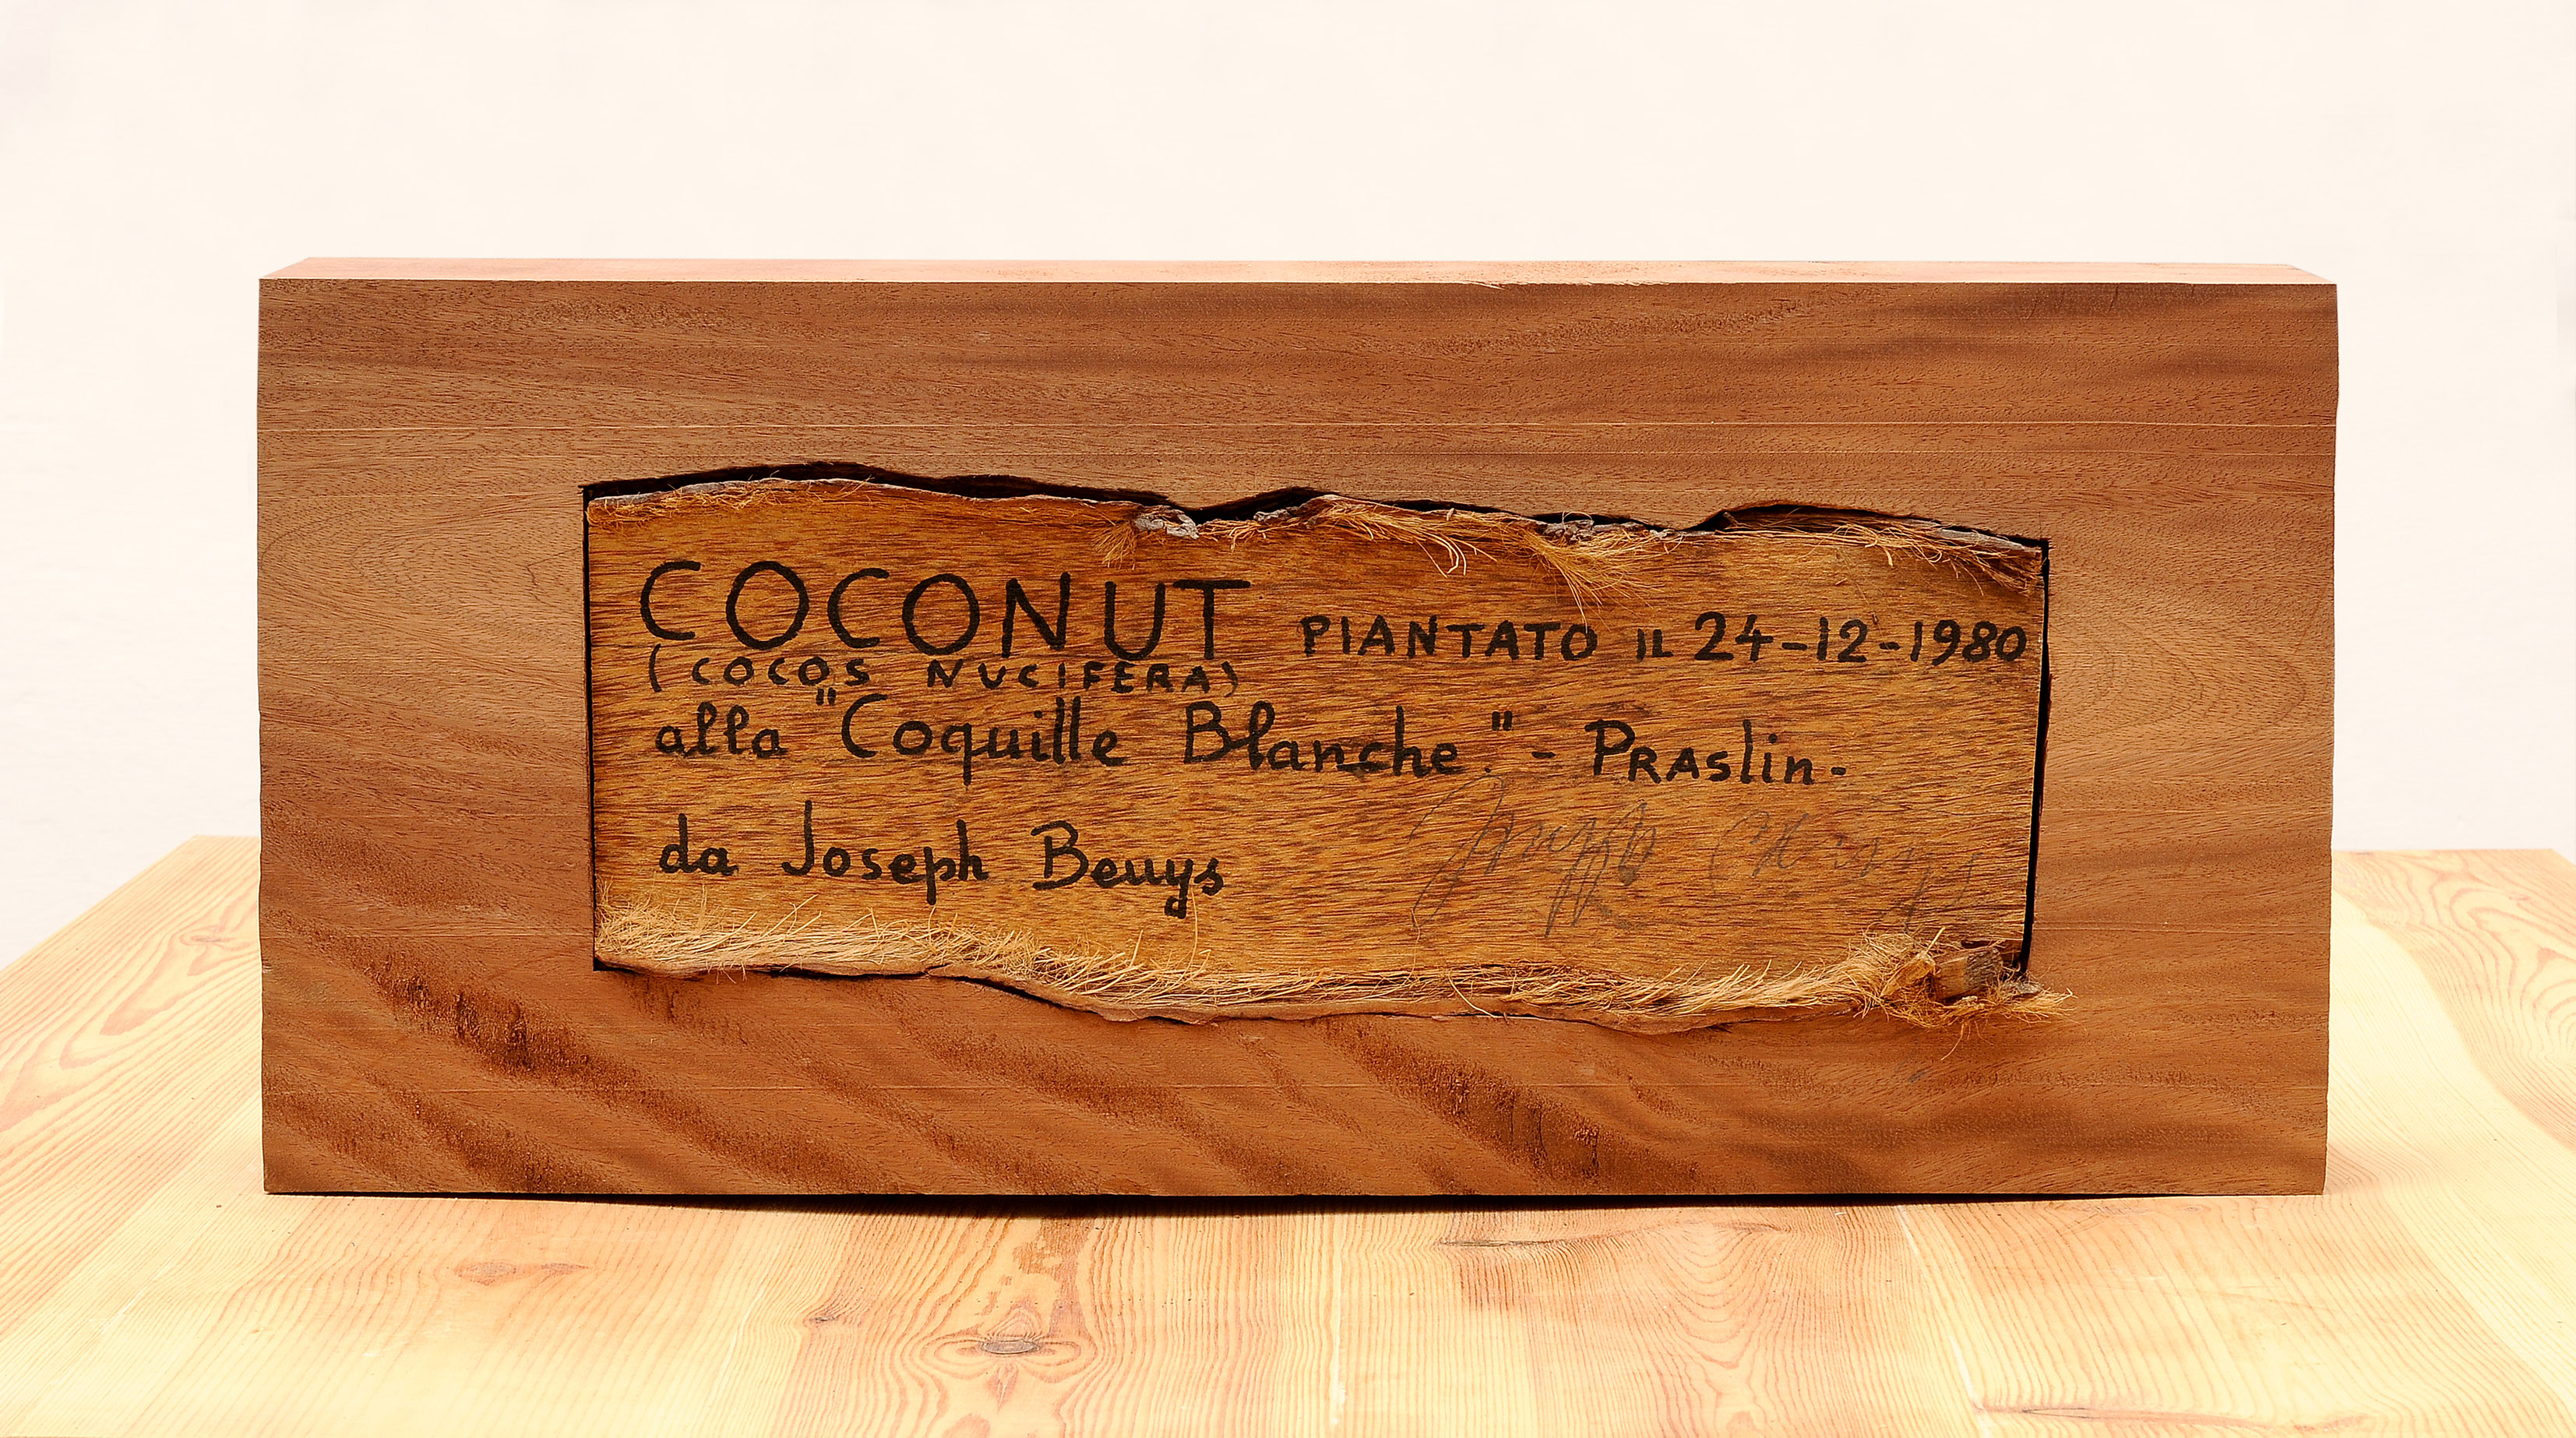 COCONUT PIANTATO IL 24-12-1980
(COCOS NUCIFERA)
alla "Coquille Blanche." - PRASlin-
da Joseph Beuys